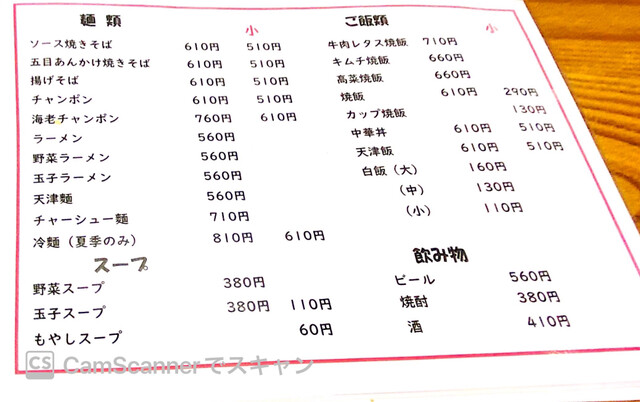 麺類
小
ソース焼きそば 610円 510円
五目あんかけ焼きそば 610円 510円
揚げそば 610円 510円
チャンポン 610円 510円
海老チャンポン 760円 610円
ラーメン 560円
野菜ラーメン 560円
玉子ラーメン 560円
天津麺 560円
チャーシュー麺 710円
冷麺（夏季のみ） 810円 610円
スープ
野菜スープ 380円
玉子スープ 380円 110円
もやしスープ 60円
ご飯類
小
牛肉レタス焼飯 710円
キムチ焼飯 660円
高菜焼飯 660円
焼飯 610円 290円
カップ焼飯 130円
中華丼 610円 510円
天津飯 610円 510円
白飯（大） 160円
（中） 130円
（小） 110円
飲み物
ビール 560円
焼酎 380円
酒 410円
CS CamScannerでスキャン